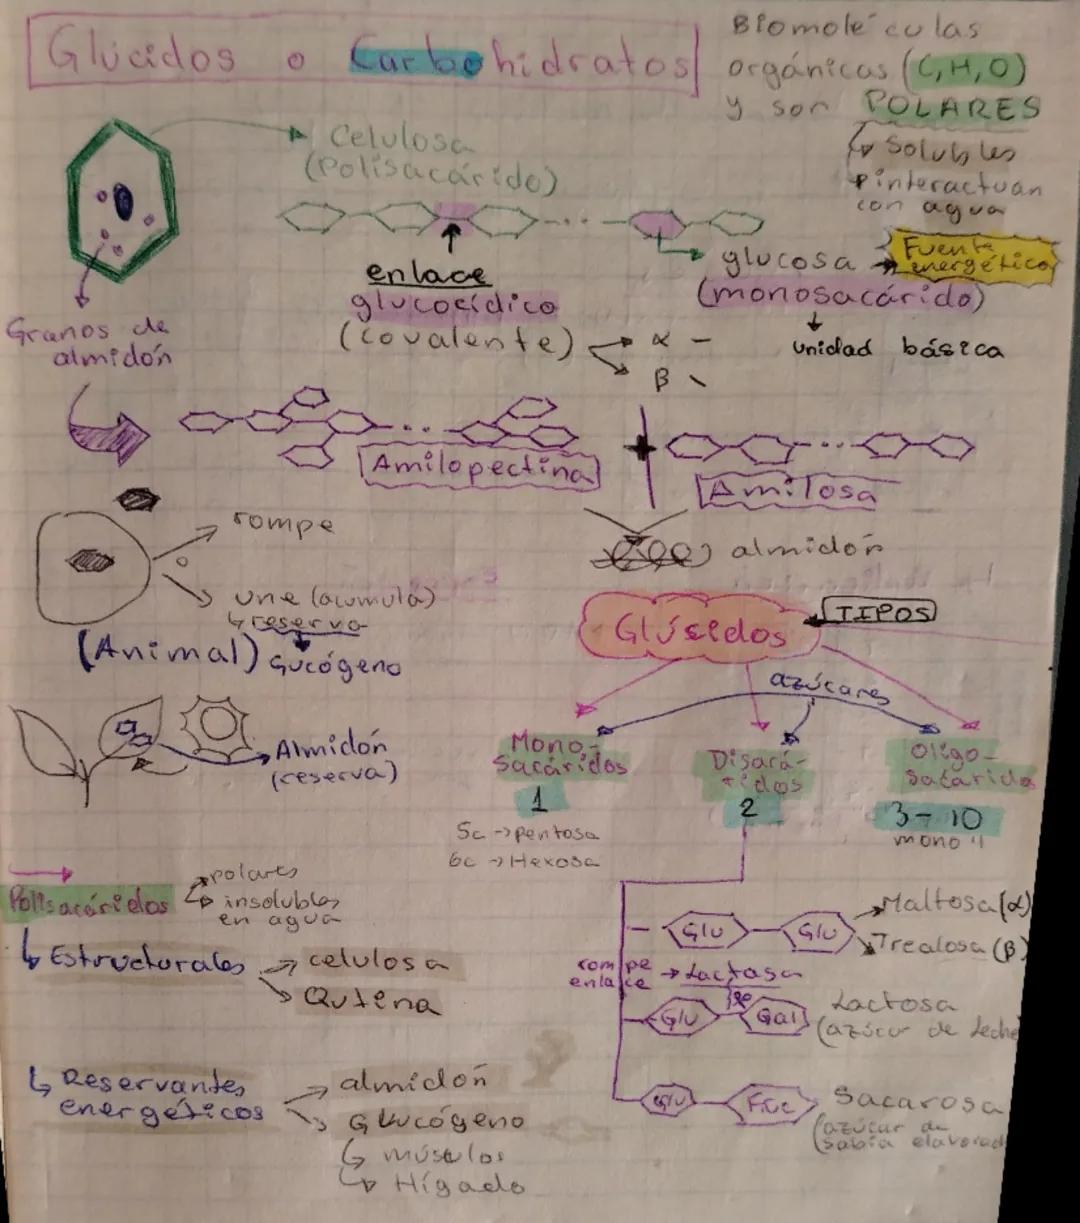 Glúcidos o Carbohidratos
Biomoléculas
orgánicas (C,H,O)
y son POLARES
Solubles
interactuan
con agua
Celulosa
(Polisacárido)
enlace
glucocídico
(covalente)
α -
β \
glucosa
(monosacárido)
Fuente
energética
unidad básica
Granos de
almidón
Amilopectina
+
Amilosa
almidón
rompe
o
une (acumula)
reserva
(Animal)
Gucógeno
Almidón
(reserva)
Glúsidos
TIPOS
azúcares
Mono-
Sacáridos
1
5c → pentosa
6c → Hexosa
Disará-
ridos
2
Oligo-
Sacárido
3-10
mono
Polisacáridos
polares
insolubles
en agua
Estructurales
celulosa
Qutina
Reservantes
energéticos
almidón
Glucógeno
músulos
Hígado
Glu
Glu
Maltosa(α)
Trealosa (β)
rompe
enlace
Lactasa
Glu
Gal
Lactosa
(azúcar de leche
Glu
Fruc
Sacarosa
(azúcar de
sabia elaborad